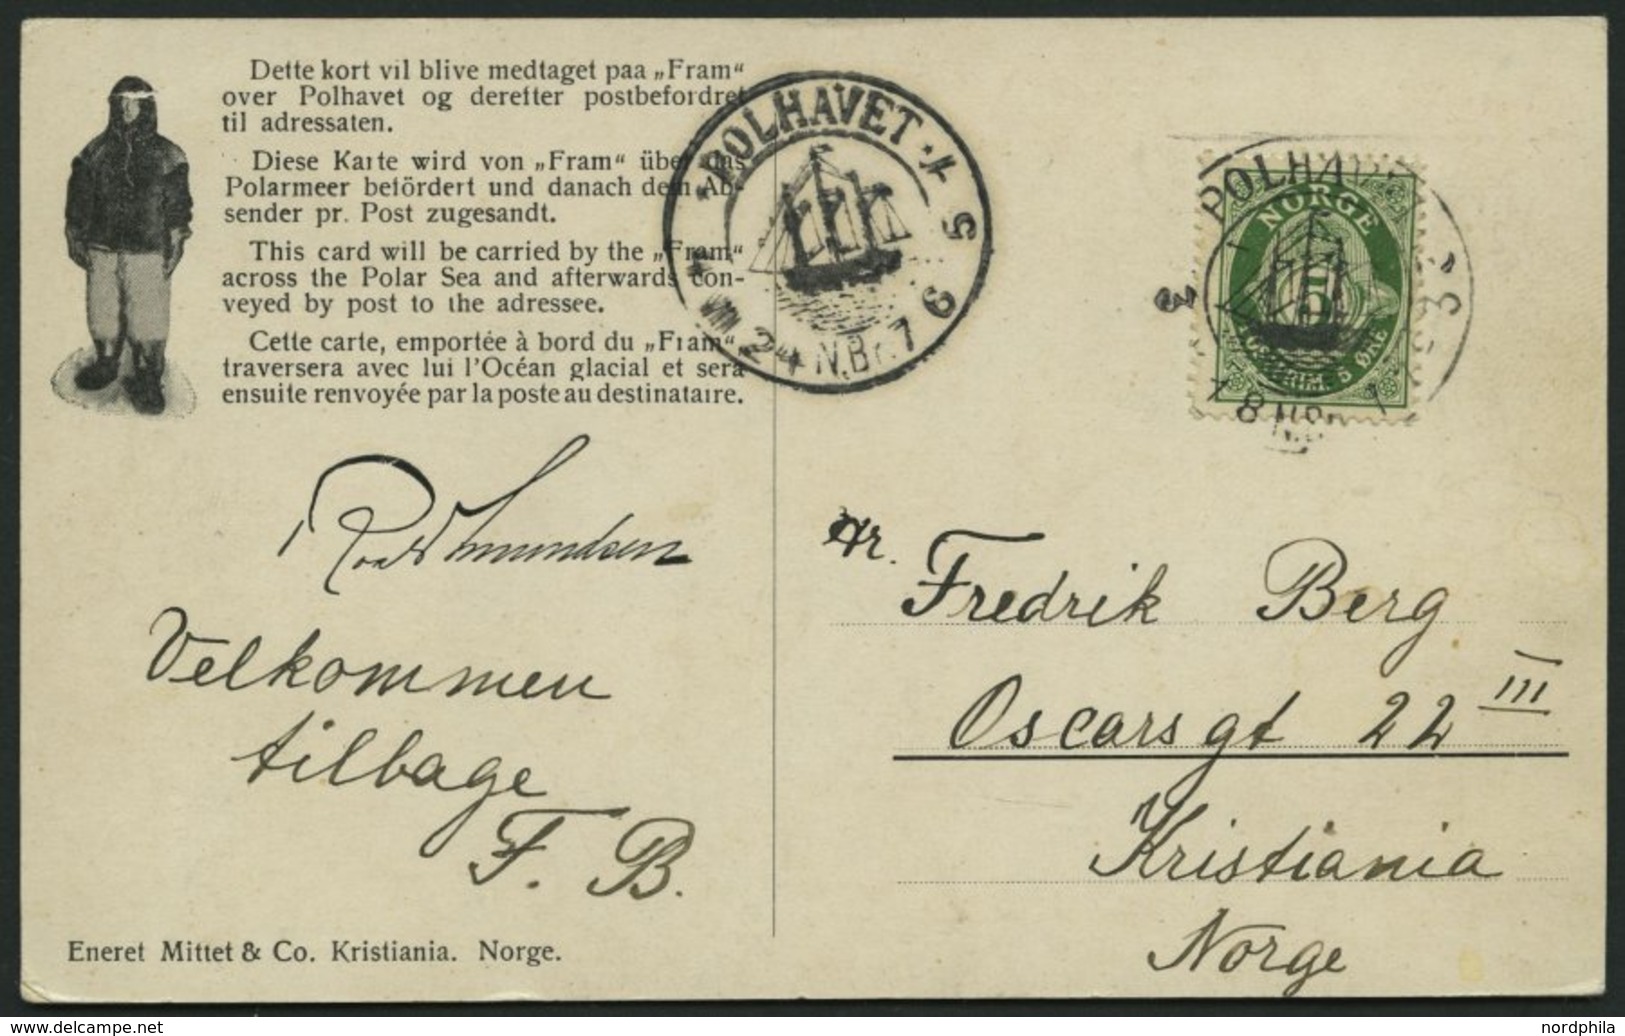 Dette kort vil blive medtaget paa „Fram“
over Polhavet og derefter postbefordret
til adressaten.
Diese Karte wird von „Fram“ über das
Polarmeer befördert und danach dem Ab-
sender pr. Post zugesandt.
This card will be carried by the „Fram“
across the Polar Sea and afterwards con-
veyed by post to the adressee.
Cette carte, emportée à bord du „Fram“,
traversera avec lui l'Océan glacial et sera
ensuite renvoyée par la poste au destinataire.
POLHAVET
POLHAVET
NORGE
5
Roald Amundsen
Velkommen
tilbage
F. B.
Hr.
Fredrik Berg
Oscarsgt 22 III
Kristiania
Norge
Eneret Mittet & Co. Kristiania. Norge.
www.delcampe.net
nordphila